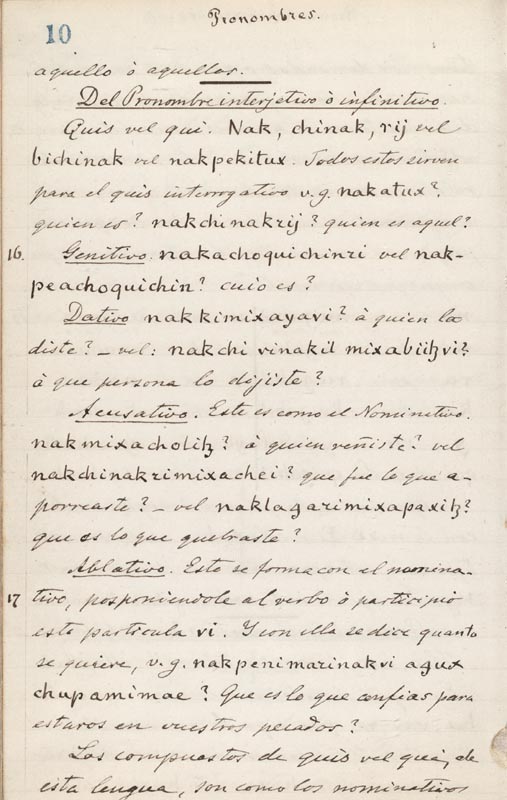 Pronombres.
10
aquello ò aquellos.
Del Pronombre interjetivo ò infinitivo.
Quis vel qui. Nak, chinak, rij vel
bichinak vel nakpekitux. Todos estos sirven
para el quis interrogativo v.g. nakatux?
quien es? nakchinakrij? quien es aquel?
16. Genitivo. nakachoquichinri vel nak-
peachoquichin? cuio es?
Dativo nakkimixayavi? à quien la
diste? – vel: nakchi vinakil mixabiitzvi?
à que persona lo dijiste?
Acusativo. Este es como el Nominativo.
nakmixacholitz? à quien reñiste? vel
nakchinakrimixachei? que fue lo que a-
porreaste? – vel naklagarimixapaxitz?
que es lo que quebraste?
Ablativo. Este se forma con el nomina-
17 tivo, posponiendole al verbo ò participio
esta particula vi. Y con ella se dice quanto
se quiere, v.g. nakpenimarinakvi agux
chupamimae? Que es lo que confias para
estaros en vuestros pecados?
Los compuestos de quis vel qui, de
esta lengua, son como los nominativos